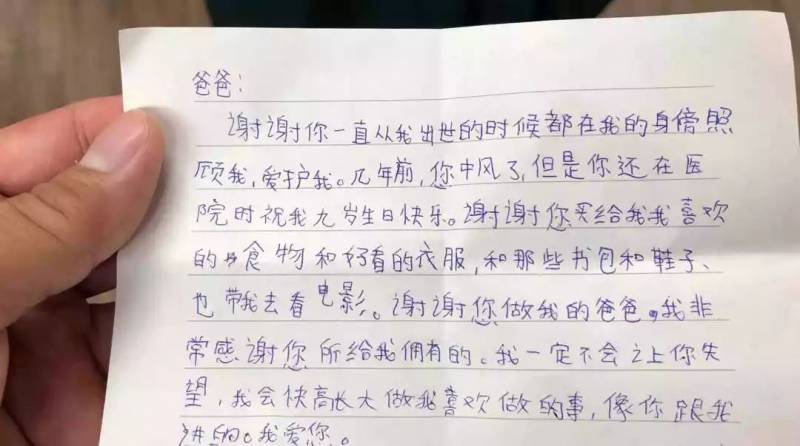 爸爸：
谢谢你一直从我出世的时候都在我的身傍照
顾我，爱护我。几年前，您中风了，但是你还在医
院时祝我九岁生日快乐。谢谢您买给我我喜欢
的食物和好看的衣服，和那些书包和鞋子、
也带我去看电影。谢谢您做我的爸爸。我非
常感谢您所给我拥有的。我一定不会让你失
望，我会快高长大做我喜欢做的事，像你跟我
讲的。我爱您。